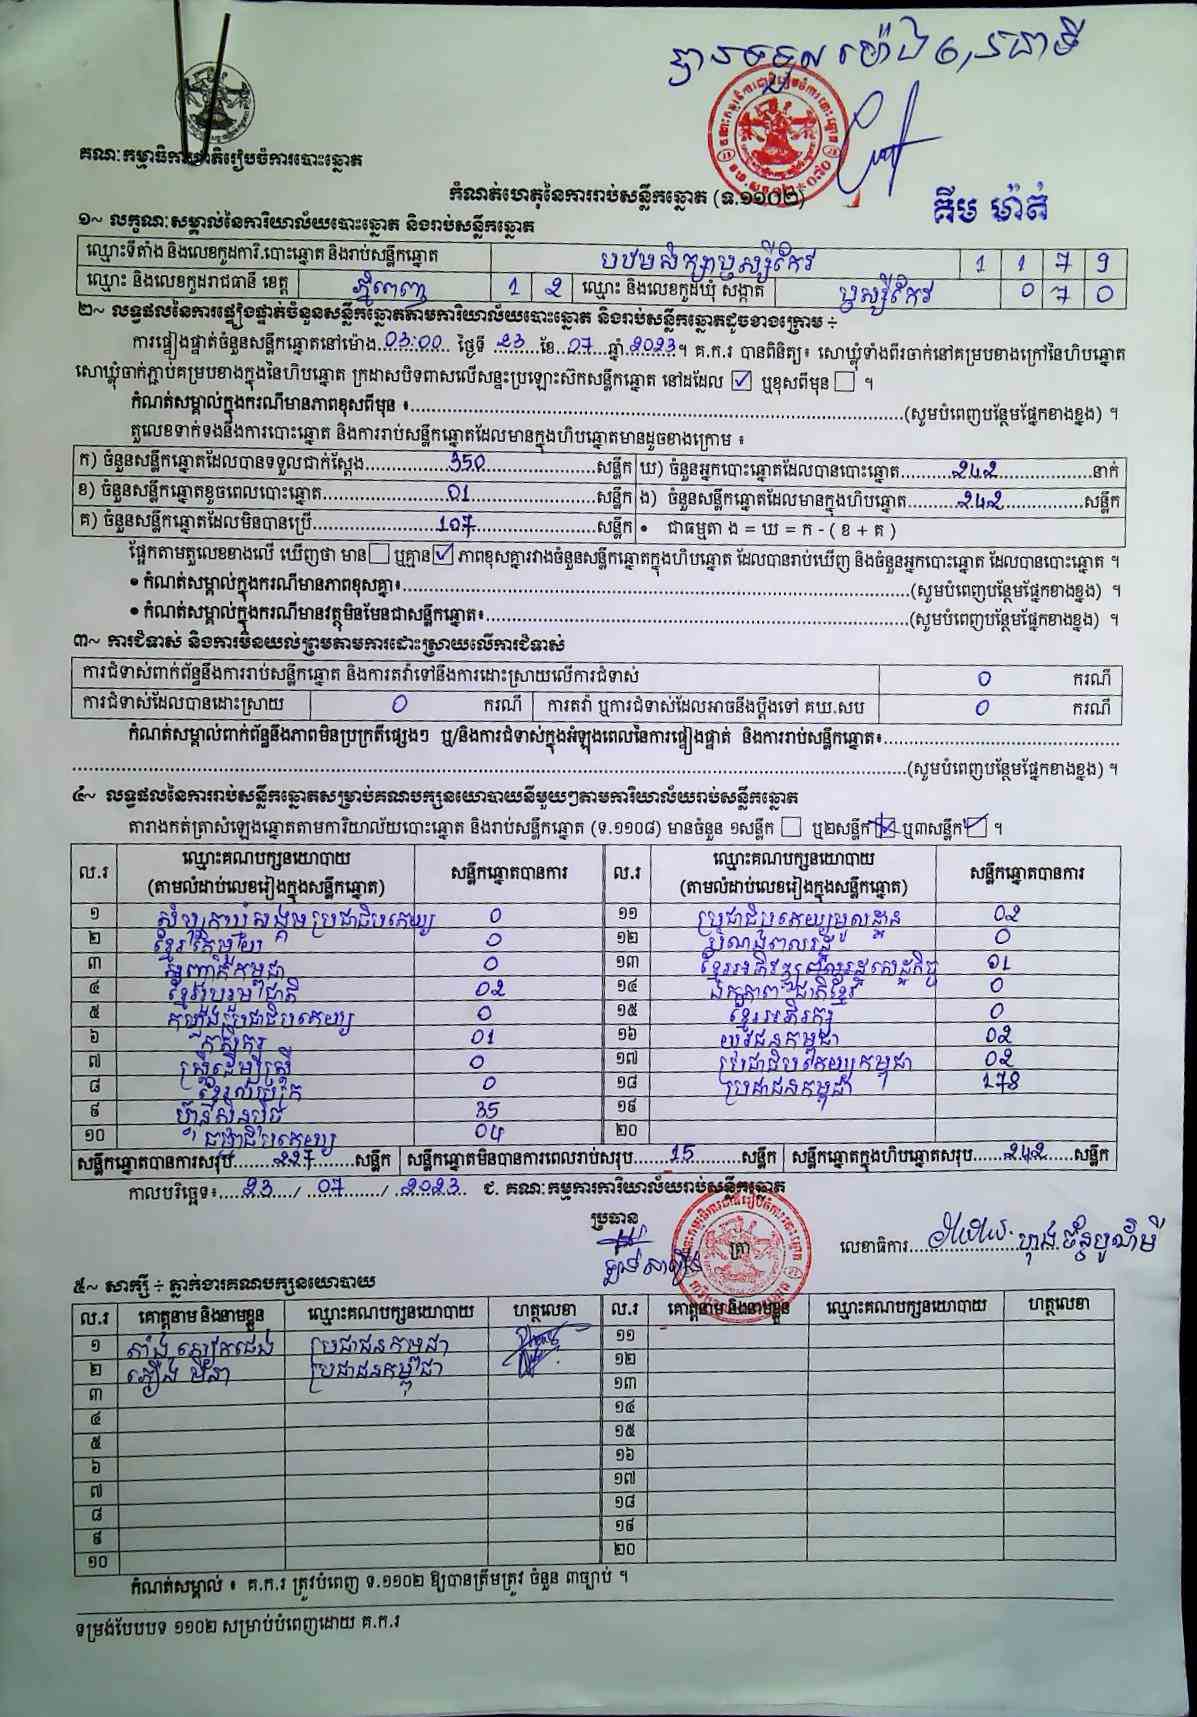 បានទទួល ម៉ោង ៦,នាទី
គណៈកម្មាធិការជាតិរៀបចំការបោះឆ្នោត
កំណត់ហេតុនៃការរាប់សន្លឹកឆ្នោត (ទ.១១០២)
គឹម ម៉ាត់
១~ លក្ខណៈសម្គាល់នៃការិយាល័យបោះឆ្នោត និងរាប់សន្លឹកឆ្នោត
ឈ្មោះទីតាំង និងលេខកូដការិ.បោះឆ្នោត និងរាប់សន្លឹកឆ្នោត បឋមសិក្សាឫស្សីកែវ 1 1 7 9
ឈ្មោះ និងលេខកូដរាជធានី ខេត្ត ភ្នំពេញ 1 2 ឈ្មោះ និងលេខកូដឃុំ សង្កាត់ ឫស្សីកែវ 0 7 0
២~ លទ្ធផលនៃការផ្ទៀងផ្ទាត់ចំនួនសន្លឹកឆ្នោតតាមការិយាល័យបោះឆ្នោត និងរាប់សន្លឹកឆ្នោតដូចខាងក្រោម ÷
ការផ្ទៀងផ្ទាត់ចំនួនសន្លឹកឆ្នោតនៅម៉ោង 03:00 ថ្ងៃទី 23 ខែ 07 ឆ្នាំ 2023 ។ គ.ក.រ បានពិនិត្យ៖ សោឃ្លុំទាំងពីរចាក់នៅគម្របខាងក្រៅនៃហិបឆ្នោត
សោឃ្លុំចាក់ភ្ជាប់គម្របខាងក្នុងនៃហិបឆ្នោត ក្រដាសបិទពាសលើសន្ទះប្រឡោះស៊កសន្លឹកឆ្នោត នៅដដែល ☑ ឬខុសពីមុន ☐ ។
កំណត់សម្គាល់ក្នុងករណីមានភាពខុសពីមុន ៖ (សូមបំពេញបន្ថែមផ្នែកខាងខ្នង) ។
តួលេខទាក់ទងនឹងការបោះឆ្នោត និងការរាប់សន្លឹកឆ្នោតដែលមានក្នុងហិបឆ្នោតមានដូចខាងក្រោម ៖
ក) ចំនួនសន្លឹកឆ្នោតដែលបានទទួលជាក់ស្តែង 350 សន្លឹក ឃ) ចំនួនអ្នកបោះឆ្នោតដែលបានបោះឆ្នោត 242 នាក់
ខ) ចំនួនសន្លឹកឆ្នោតខូចពេលបោះឆ្នោត 01 សន្លឹក ង) ចំនួនសន្លឹកឆ្នោតដែលមានក្នុងហិបឆ្នោត 242 សន្លឹក
គ) ចំនួនសន្លឹកឆ្នោតដែលមិនបានប្រើ 107 សន្លឹក • ជាធម្មតា ង = ឃ = ក - ( ខ + គ )
ផ្អែកតាមតួលេខខាងលើ ឃើញថា មាន ☐ ឬគ្មាន ☑ ភាពខុសគ្នារវាងចំនួនសន្លឹកឆ្នោតក្នុងហិបឆ្នោត ដែលបានរាប់ឃើញ និងចំនួនអ្នកបោះឆ្នោត ដែលបានបោះឆ្នោត ។
• កំណត់សម្គាល់ក្នុងករណីមានភាពខុសគ្នា៖ (សូមបំពេញបន្ថែមផ្នែកខាងខ្នង) ។
• កំណត់សម្គាល់ក្នុងករណីមានវត្ថុមិនមែនជាសន្លឹកឆ្នោត៖ (សូមបំពេញបន្ថែមផ្នែកខាងខ្នង) ។
៣~ ការជំទាស់ និងការមិនយល់ព្រមតាមការដោះស្រាយលើការជំទាស់
ការជំទាស់ពាក់ព័ន្ធនឹងការរាប់សន្លឹកឆ្នោត និងការតវ៉ាទៅនឹងការដោះស្រាយលើការជំទាស់ 0 ករណី
ការជំទាស់ដែលបានដោះស្រាយ 0 ករណី ការតវ៉ា ឬការជំទាស់ដែលអាចនឹងប្តឹងទៅ គឃ.សប 0 ករណី
កំណត់សម្គាល់ពាក់ព័ន្ធនឹងភាពមិនប្រក្រតីផ្សេងៗ ឬ/និងការជំទាស់ក្នុងអំឡុងពេលនៃការផ្ទៀងផ្ទាត់ និងការរាប់សន្លឹកឆ្នោត៖
(សូមបំពេញបន្ថែមផ្នែកខាងខ្នង) ។
៤~ លទ្ធផលនៃការរាប់សន្លឹកឆ្នោតសម្រាប់គណបក្សនយោបាយនីមួយៗតាមការិយាល័យរាប់សន្លឹកឆ្នោត
តារាងកត់ត្រាសំឡេងឆ្នោតតាមការិយាល័យបោះឆ្នោត និងរាប់សន្លឹកឆ្នោត (ទ.១១០៨) មានចំនួន ១សន្លឹក ☐ ឬ២សន្លឹក ឬ៣សន្លឹក ☑ ។
ល.រ ឈ្មោះគណបក្សនយោបាយ (តាមលំដាប់លេខរៀងក្នុងសន្លឹកឆ្នោត) សន្លឹកឆ្នោតបានការ ល.រ ឈ្មោះគណបក្សនយោបាយ (តាមលំដាប់លេខរៀងក្នុងសន្លឹកឆ្នោត) សន្លឹកឆ្នោតបានការ
១ សំបុកឃ្មុំសង្គមប្រជាធិបតេយ្យ 0 ១១ ប្រជាធិបតេយ្យមូលដ្ឋាន 02
២ ខ្មែរតែមួយ 0 ១២ បំណងពលរដ្ឋ 0
៣ សញ្ជាតិកម្ពុជា 0 ១៣ ខ្មែរអភិវឌ្ឍន៍សេដ្ឋកិច្ច 01
៤ ខ្មែររួបរួមជាតិ 02 ១៤ ឯកភាពជាតិខ្មែរ 0
៥ កម្លាំងប្រជាធិបតេយ្យ 0 ១៥ ខ្មែរអភិរក្ស 0
៦ កសិករ 01 ១៦ យុវជនកម្ពុជា 02
៧ ស្ត្រីដើម្បីស្ត្រី 0 ១៧ ប្រជាធិបតេយ្យកម្ពុជា 02
៨ ខ្មែរលើប្រជា 0 ១៨ ប្រជាជនកម្ពុជា 178
៩ ហ៊្វុនស៊ិនប៉ិច 35 ១៩
១០ ធម្មាធិបតេយ្យ 04 ២០
សន្លឹកឆ្នោតបានការសរុប 227 សន្លឹក សន្លឹកឆ្នោតមិនបានការពេលរាប់សរុប 15 សន្លឹក សន្លឹកឆ្នោតក្នុងហិបឆ្នោតសរុប 242 សន្លឹក
កាលបរិច្ឆេទ៖ 23 / 07 / 2023 ជ. គណៈកម្មការការិយាល័យរាប់សន្លឹកឆ្នោត
ប្រធាន ត្រា លេខាធិការ
៥~ សាក្សី ÷ ភ្នាក់ងារគណបក្សនយោបាយ
ល.រ គោត្តនាម និងនាមខ្លួន ឈ្មោះគណបក្សនយោបាយ ហត្ថលេខា ល.រ គោត្តនាម និងនាមខ្លួន ឈ្មោះគណបក្សនយោបាយ ហត្ថលេខា
១ ប្រជាជនកម្ពុជា ១១
២ ភឿង ប្រជាជនកម្ពុជា ១២
៣ ១៣
៤ ១៤
៥ ១៥
៦ ១៦
៧ ១៧
៨ ១៨
៩ ១៩
១០ ២០
កំណត់សម្គាល់ ៖ គ.ក.រ ត្រូវបំពេញ ទ.១១០២ ឱ្យបានត្រឹមត្រូវ ចំនួន ៣ច្បាប់ ។
ទម្រង់បែបបទ ១១០២ សម្រាប់បំពេញដោយ គ.ក.រ